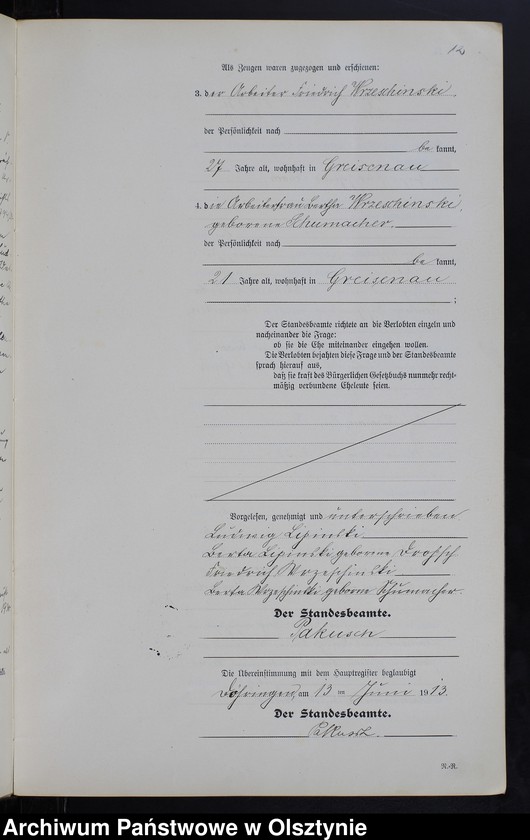 12
Als Zeugen waren zugezogen und erschienen:
3. der Arbeiter Friedrich Wrzeschinski,
der Persönlichkeit nach
be kannt,
27 Jahre alt, wohnhaft in Greisenau
4. die Arbeiterfrau Bertha Wrzeschinski,
geborene Schumacher,
der Persönlichkeit nach
be kannt,
21 Jahre alt, wohnhaft in Greisenau
;
Der Standesbeamte richtete an die Verlobten einzeln und
nacheinander die Frage:
ob sie die Ehe miteinander eingehen wollen.
Die Verlobten bejahten diese Frage und der Standesbeamte
sprach hierauf aus,
daß sie kraft des Bürgerlichen Gesetzbuchs nunmehr recht-
mäßig verbundene Eheleute seien.
Vorgelesen, genehmigt und unterschrieben
Ludwig Lipinski
Berta Lipinski geborene
Friedrich Wrzeschinski
Berta Wrzeschinski geborne Schumacher.
Der Standesbeamte.
Pakusch
Die Übereinstimmung mit dem Hauptregister beglaubigt
Döhringen, am 13 ten Juni 1913.
Der Standesbeamte.
Pakusch.
N.-R.
Archiwum Państwowe w Olsztynie